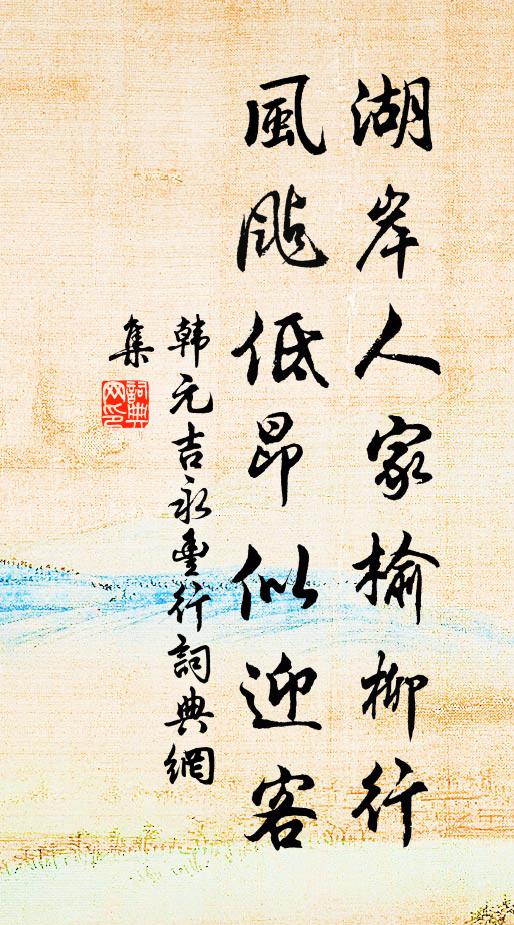 湖岸人家榆柳行
風颭低昂似迎客
韩元吉永豊行詞典網
集
詞典
网印